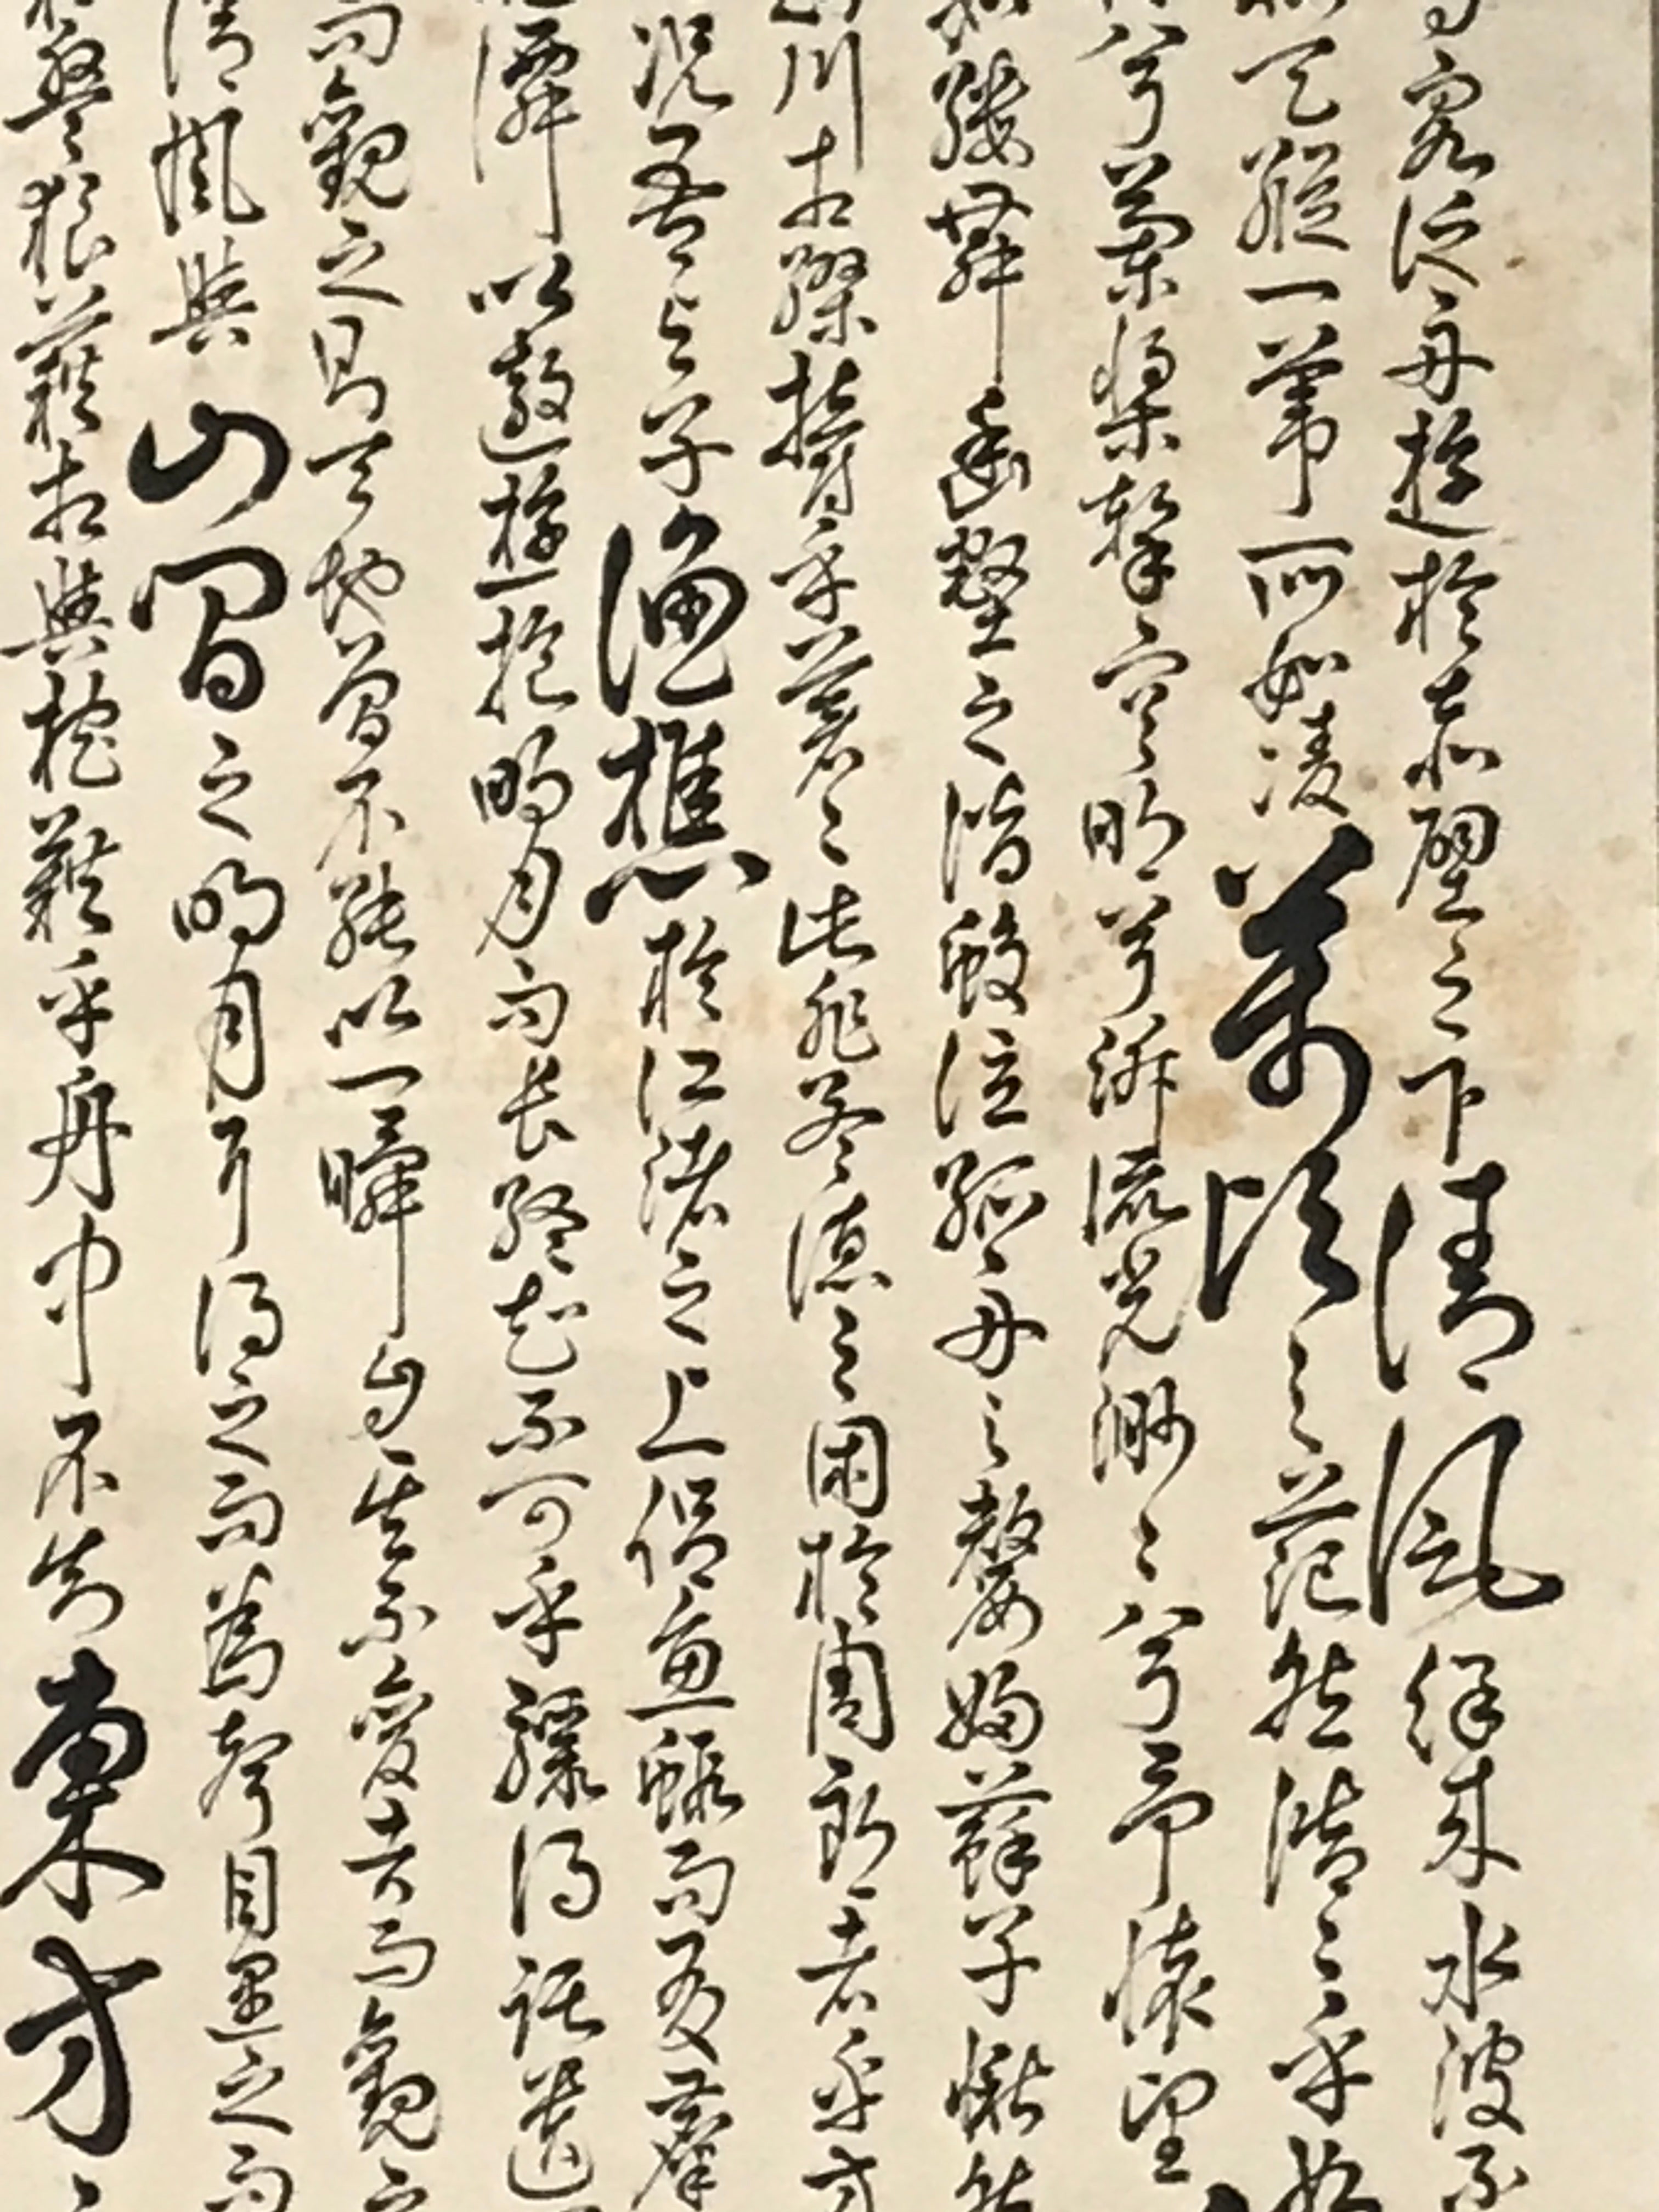 客泛舟遊於赤壁之下清風徐來水波不
天縱一葦所如凌萬頃之茫然浩々乎
兮蘭漿擊空明兮泝流光渺々兮予懷望
縷舞幽壑之潛蛟泣孤舟之嫠婦蘇子愀然
川相繆欝乎蒼々此非孟德之困於周郎者乎方
況吾与子漁樵於江渚之上侶魚蝦而友麋
蟬以遨遊抱明月而長終知不可乎驟得託遺
而觀之則天地曾不能以一瞬自其不變者而觀之
清風與山間之明月耳得之而為聲目遇之而
盤狼藉相與枕藉乎舟中不知東方